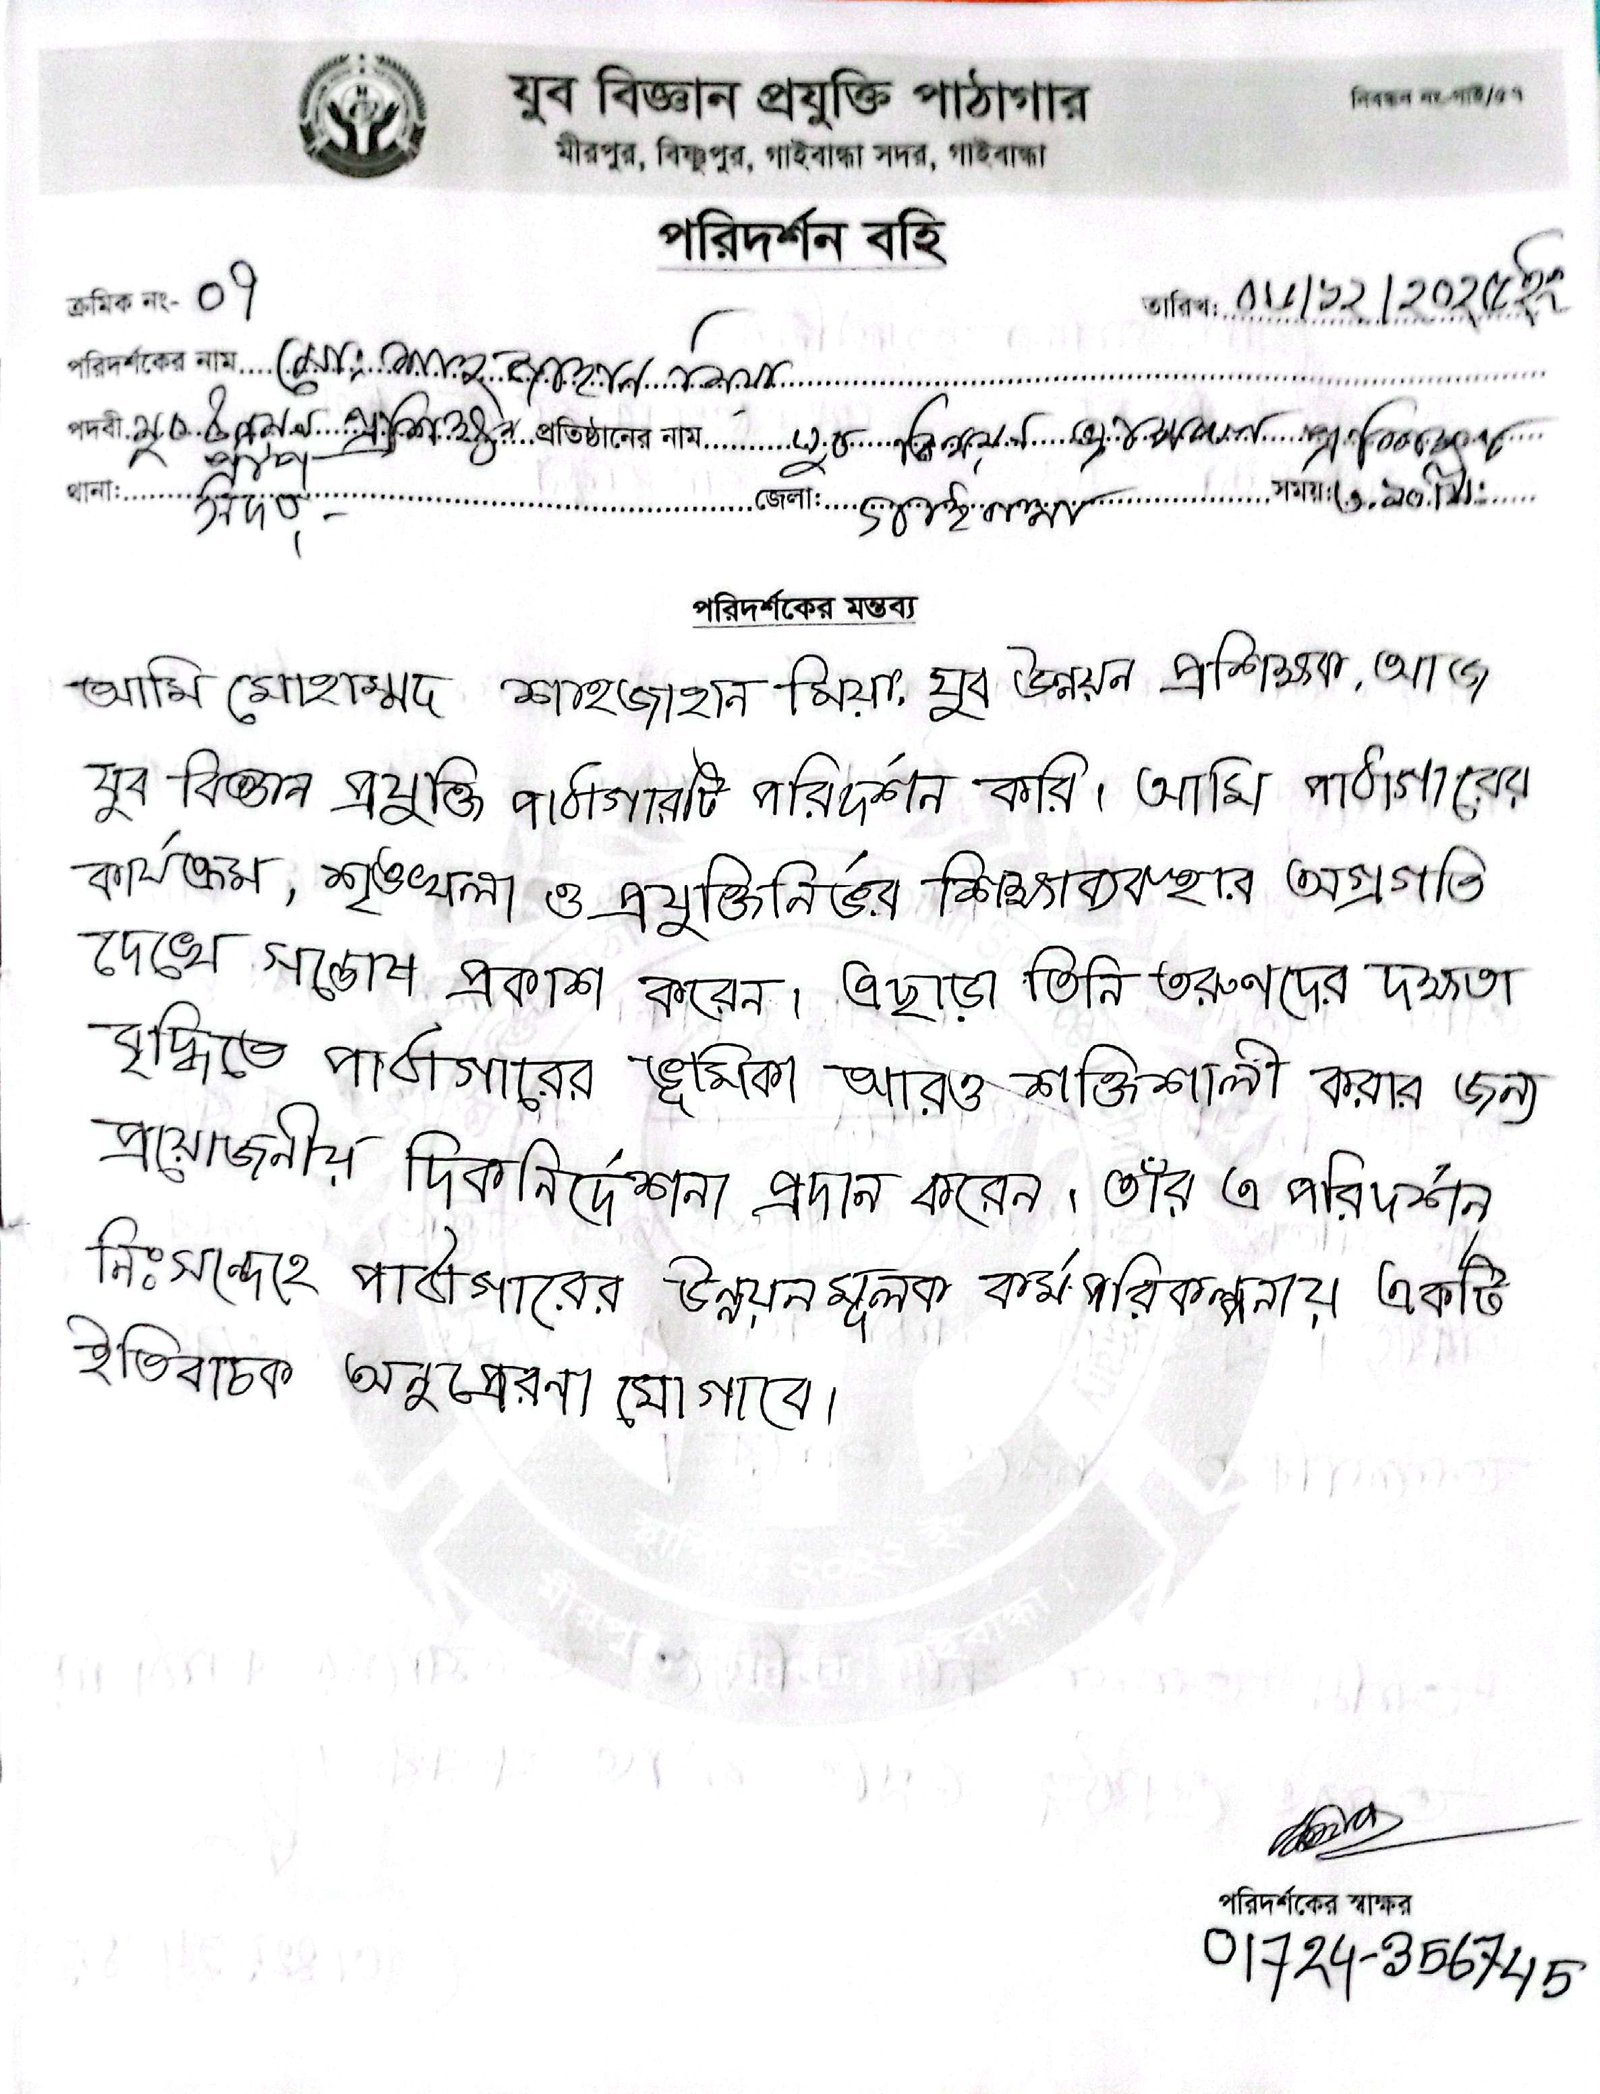 যুব বিজ্ঞান প্রযুক্তি পাঠাগার
নিবন্ধন নং-গাই/৫৭
মীরপুর, বিষ্ণুপুর, গাইবান্ধা সদর, গাইবান্ধা
পরিদর্শন বহি
ক্রমিক নং- ০৭
তারিখ: ০৮/১২/২০২৫ইং
পরিদর্শকের নাম মোঃ শাহ্ জাহান মিয়া
পদবী যুব উন্নয়ন প্রশিক্ষক প্রতিষ্ঠানের নাম যুব
থানা: সদর জেলা: গাইবান্ধা সময়: ৩.১০ মিঃ
পরিদর্শকের মন্তব্য
আমি মোহাম্মদ শাহজাহান মিয়া, যুব উন্নয়ন প্রশিক্ষক, আজ
যুব বিজ্ঞান প্রযুক্তি পাঠাগারটি পরিদর্শন করি। আমি পাঠাগারের
কার্যক্রম, শৃঙ্খলা ও প্রযুক্তিনির্ভর শিক্ষাব্যবস্থার অগ্রগতি
দেখে সন্তোষ প্রকাশ করেন। এছাড়া তিনি তরুণদের দক্ষতা
বৃদ্ধিতে পাঠাগারের ভূমিকা আরও শক্তিশালী করার জন্য
প্রয়োজনীয় দিকনির্দেশনা প্রদান করেন। তাঁর এ পরিদর্শন
নিঃসন্দেহে পাঠাগারের উন্নয়নমূলক কর্মপরিকল্পনায় একটি
ইতিবাচক অনুপ্রেরনা যোগাবে।
পরিদর্শকের স্বাক্ষর
01724-356745